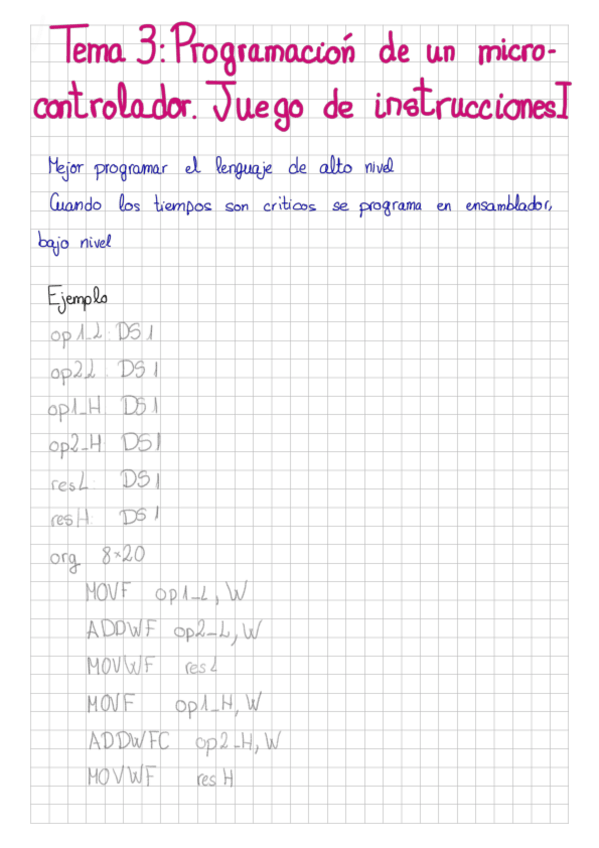 Tema 3: Programación de un micro-
controlador. Juego de instrucciones I
Mejor programar el lenguaje de alto nivel
Cuando los tiempos son criticos se programa en ensamblador,
bajo nivel
Ejemplo
op1_L: DS 1
op2L: DS 1
op1_H DS 1
op2_H: DS 1
resL: DS 1
resH DS 1
org 8*20
MOVF op1_L, W
ADDWF op2_L, W
MOVWF resL
MOVF op1_H, W
ADDWFC op2_H, W
MOVWF resH